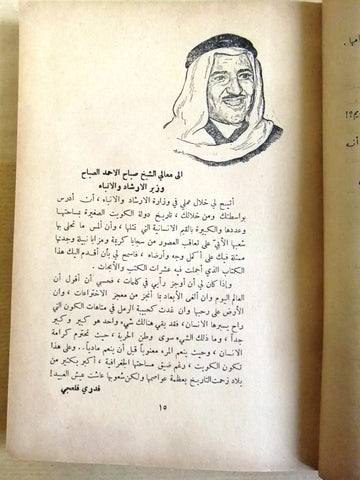 الى معالي الشيخ صباح الاحمد الصباح
وزير الارشاد والانباء
أتيح لي خلال عملي في وزارة الارشاد والأنباء ، أن أدرس
بواسطتك ومن خلالك ، تاريخ دولة الكويت الصغيرة بمساحتها
وعددها والكبيرة بالقيم الانسانية التي تمثلها ، وأن ألمس ما تحلى بها
شعبها الأبي على تعاقب العصور من سجايا كريمة ومزايا نبيلة وجدتها
ممثلة فيك على أكمل وجه وأرضاه ، فاسمح لي بأن أقدم اليك هذا
الكتاب الذي أجملت فيه عشرات الكتب والأبحاث .
وإذا كان لي أن أوجز رأيي في كلمات ، فحسبي أن أقول أن
العالم اليوم وان ألغى الأبعاد بما أنجز من معجز الاختراعات ، وان
الأرض على رحبها وان غدت كحبيبة الرمل في متاهات الكون التي
راح يسبرها الانسان ، فقد بقي هنالك شيء واحد هو كبير وكبير
جداً ، وما ذلك الشيء سوى وطن الحرية ، حيث تحترم كرامة
الانسان ، وحيث ينعم المرء معنوياً قبل أن ينعم مادياً.. وعلى هذا
تكون الكويت ، رغم ضيق مساحتها الجغرافية ، أكبر بكثير من
بلاد زحمت التاريخ بعظمة عواصمها ولكن شعوبها عاشت عيش العبيد !
قدري قلعجي
١٥